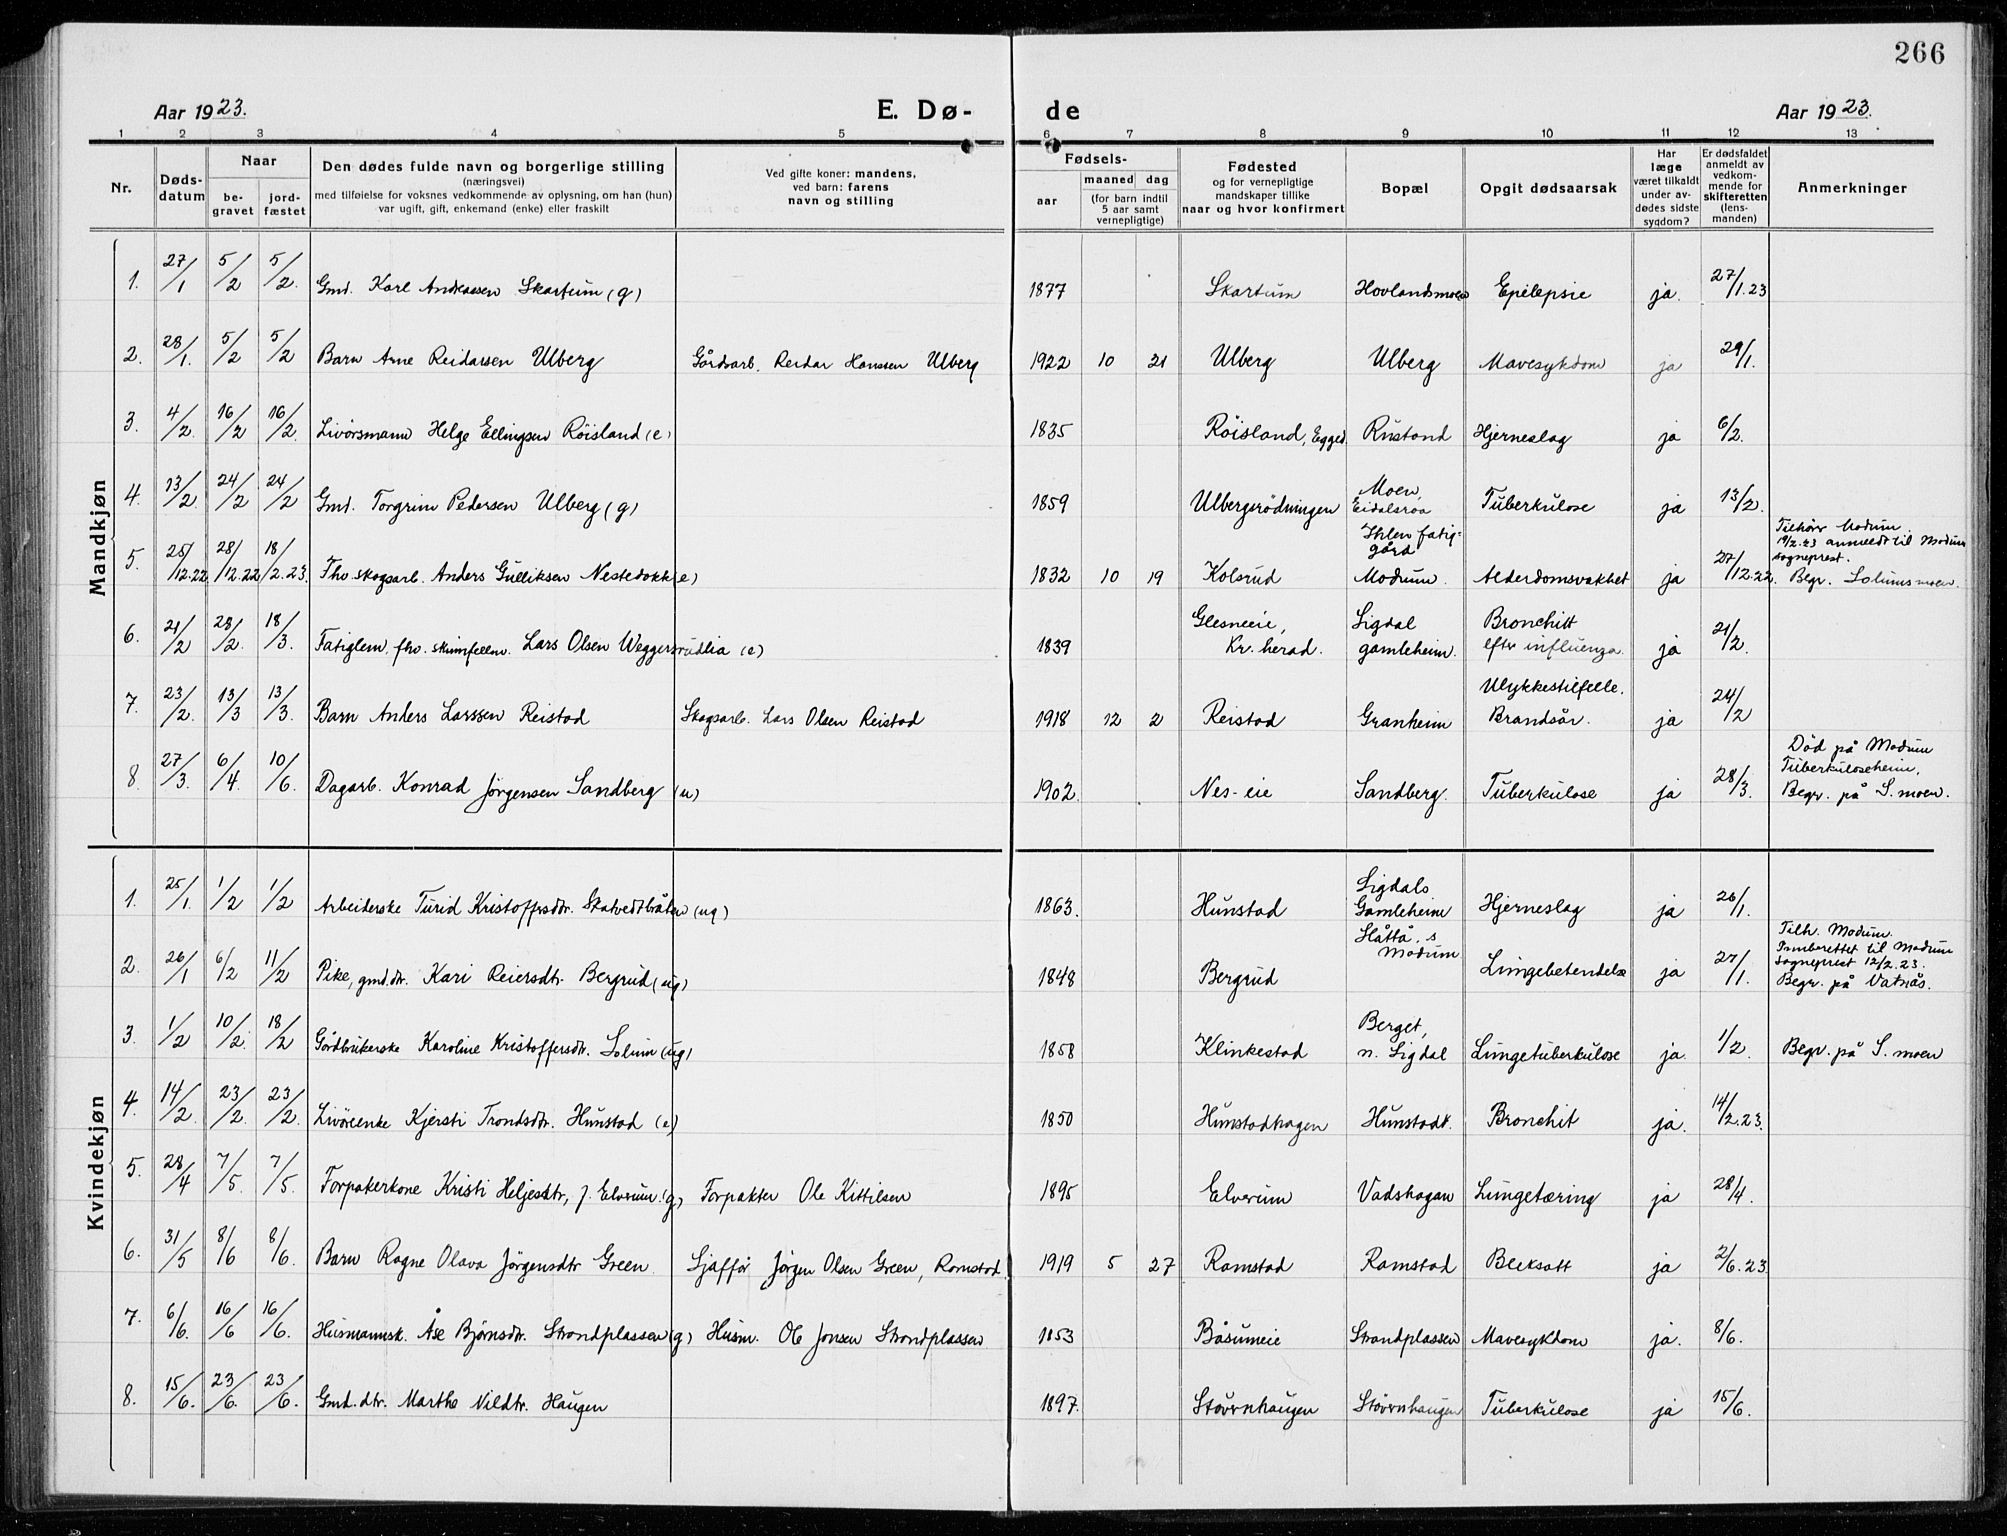 266
Aar 1923. E. Dø- de Aar 1923.
1 2 3 4 5 6 7 8 9 10 11 12 13
Nr. Døds-datum Naar be-gravet jord-fæstet Den dødes fulde navn og borgerlige stilling (næringsvei) med tilføielse for voksnes vedkommende av oplysning, om han (hun) var ugift, gift, enkemand (enke) eller fraskilt Ved gifte koner: mandens, ved barn: farens navn og stilling Fødsels- aar maaned dag (for barn indtil 5 aar samt vernepligtige) Fødested og for vernepligtige mandskaper tillike naar og hvor konfirmert Bopæl Opgit dødsaarsak Har læge været tilkaldt under av-dødes sidste sygdom? Er dødsfaldet anmeldt av vedkom-mende for skifteretten (lens-manden) Anmerkninger
Mandkjøn
1. 27/1 5/2 5/2. Gmd. Karl Andreassen Skartum (g) 1877 Skartum Hovlandsmoen Epilepsie ja. 27/1.23
2. 28/1. 5/2 5/2 Barn Arne Reidarsen Ulberg Gårdsarb. Reidar Hanssen Ulberg 1922 10 21 Ulberg Ulberg Mavesykdom ja 29/1.
3. 4/2. 16/2 16/2. Livörsmann Helge Ellingsen Röisland (e) 1835 Röisland, Egged. Rustand Hjerneslag ja 6/2.
4. 13/2. 24/2 24/2 Gmd. Torgrim Pedersen Ulberg (g) 1859 Ulbergsrödningen Moen, Eidalsroa Tuberkulose ja 13/2.
5. 25/12.22 28/12.22 18/2.23. Fhv. skogsarb. Anders Gulliksen Nestedokk (e) 1832 10 19 Kolsrud Ihlen fatig-gård Modum. Alderdomsvakhet ja 27/12.22. Tilhörer Modum. 19/2.23 anmeldt til Modum sogneprest. Begr. Solumsmoen.
6. 21/2 28/2. 18/3. Fatiglem, fhv. skinnfellm. Lars Olsen Weggersrudlia (e) 1839 Glesneeie, Kr. herad. Sigdal gamleheim. Bronchitt efter influenza ja 21/2.
7. 23/2. 13/3 13/3. Barn Anders Larssen Reistad Skogsarb. Lars Olsen Reistad 1918 12 2 Reistad Granheim Ulykkestilfelle. Brandsår. ja 24/2
8. 27/3. 6/4. 10/6. Dagarb. Konrad Jörgensen Sandberg (u) 1902. Nes-eie Sandberg. Tuberkulose ja 28/3. Död på Modum Tuberkuloseheim. Begr. på S. moen.
Kvindekjøn
1. 25/1. 1/2 1/2 Arbeiderske Turid Kristoffersdtr. Skatvedtbråten (ug) 1863. Hunstad Sigdals Gamleheim Hjerneslag ja 26/1.
2. 26/1 6/2 11/2 Pike, gmd.dtr. Kari Reiersdtr. Bergrud (ug) 1848 Bergrud Håttå, s Modum Lungebetendelse ja 27/1. Tilh. Modum. Innberettet til Modum sogneprest 12/2.23. Begr. på Vatnås.
3. 1/2 10/2. 18/2 Gårdbrukerske Karoline Kristoffersdtr. Solum (ug) 1858 Klinkestad Berget, n. Sigdal Lungetuberkulose ja. 1/2. Begr. på S. moen
4. 14/2 23/2. 23/2. Livöreenke Kjersti Trondsdtr. Hunstad (e) 1850 Hunstadhagen Hunstadt. Bronchit ja. 14/2.23.
5. 28/4 7/5. 7/5. Forpakterkone Kristi Heljesdtr, f. Elverum (g) Forpakter Ole Kittilsen 1895 Elverum Vadshagan Lungetæring ja 28/4.
6. 31/5 8/6 8/6. Barn Ragne Olava Jörgensdtr Green Sjafför Jörgen Olsen Green, Ramstad. 1919 5 27 Ramstad Ramstad Bleksott ja 2/6.23.
7. 6/6. 16/6 16/6. Husmannsk. Åse Björnsdtr. Strandplassen (g) Husm. Ole Jonsen Strandplassen 1853 Båsumeie Strandplassen Mavesykdom ja. 8/6.
8. 15/6. 23/6. 23/6. Gmd.dtr. Marthe Nildtr. Haugen 1897. Stövrnhaugen Stövrnhaugen Tuberkulose ja 15/6.